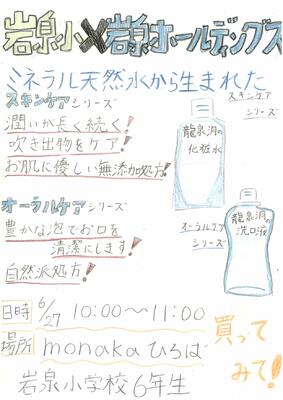 岩泉小×岩泉ホールディングス
ミネラル天然水から生まれた
スキンケアシリーズ
潤いが長く続く!
吹き出物をケア!
お肌に優しい無添加処方!
スキンケア
シリーズ
龍泉洞の
化粧水
オーラルケアシリーズ
豊かな泡でお口を
清潔にします!
自然派処方!
オーラルケア
シリーズ
龍泉洞の
洗口液
日時 6/27 10:00〜11:00
場所 monakaひろば
岩泉小学校6年生
買って
みて!